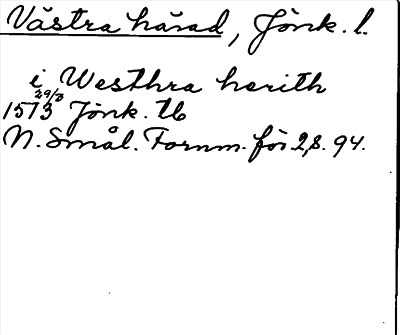 Västra härad, Jönk. l.
i Westhra herith
1513 29/8 Jönk. tb
N. Smål. Fornm. för 2,8. 94.